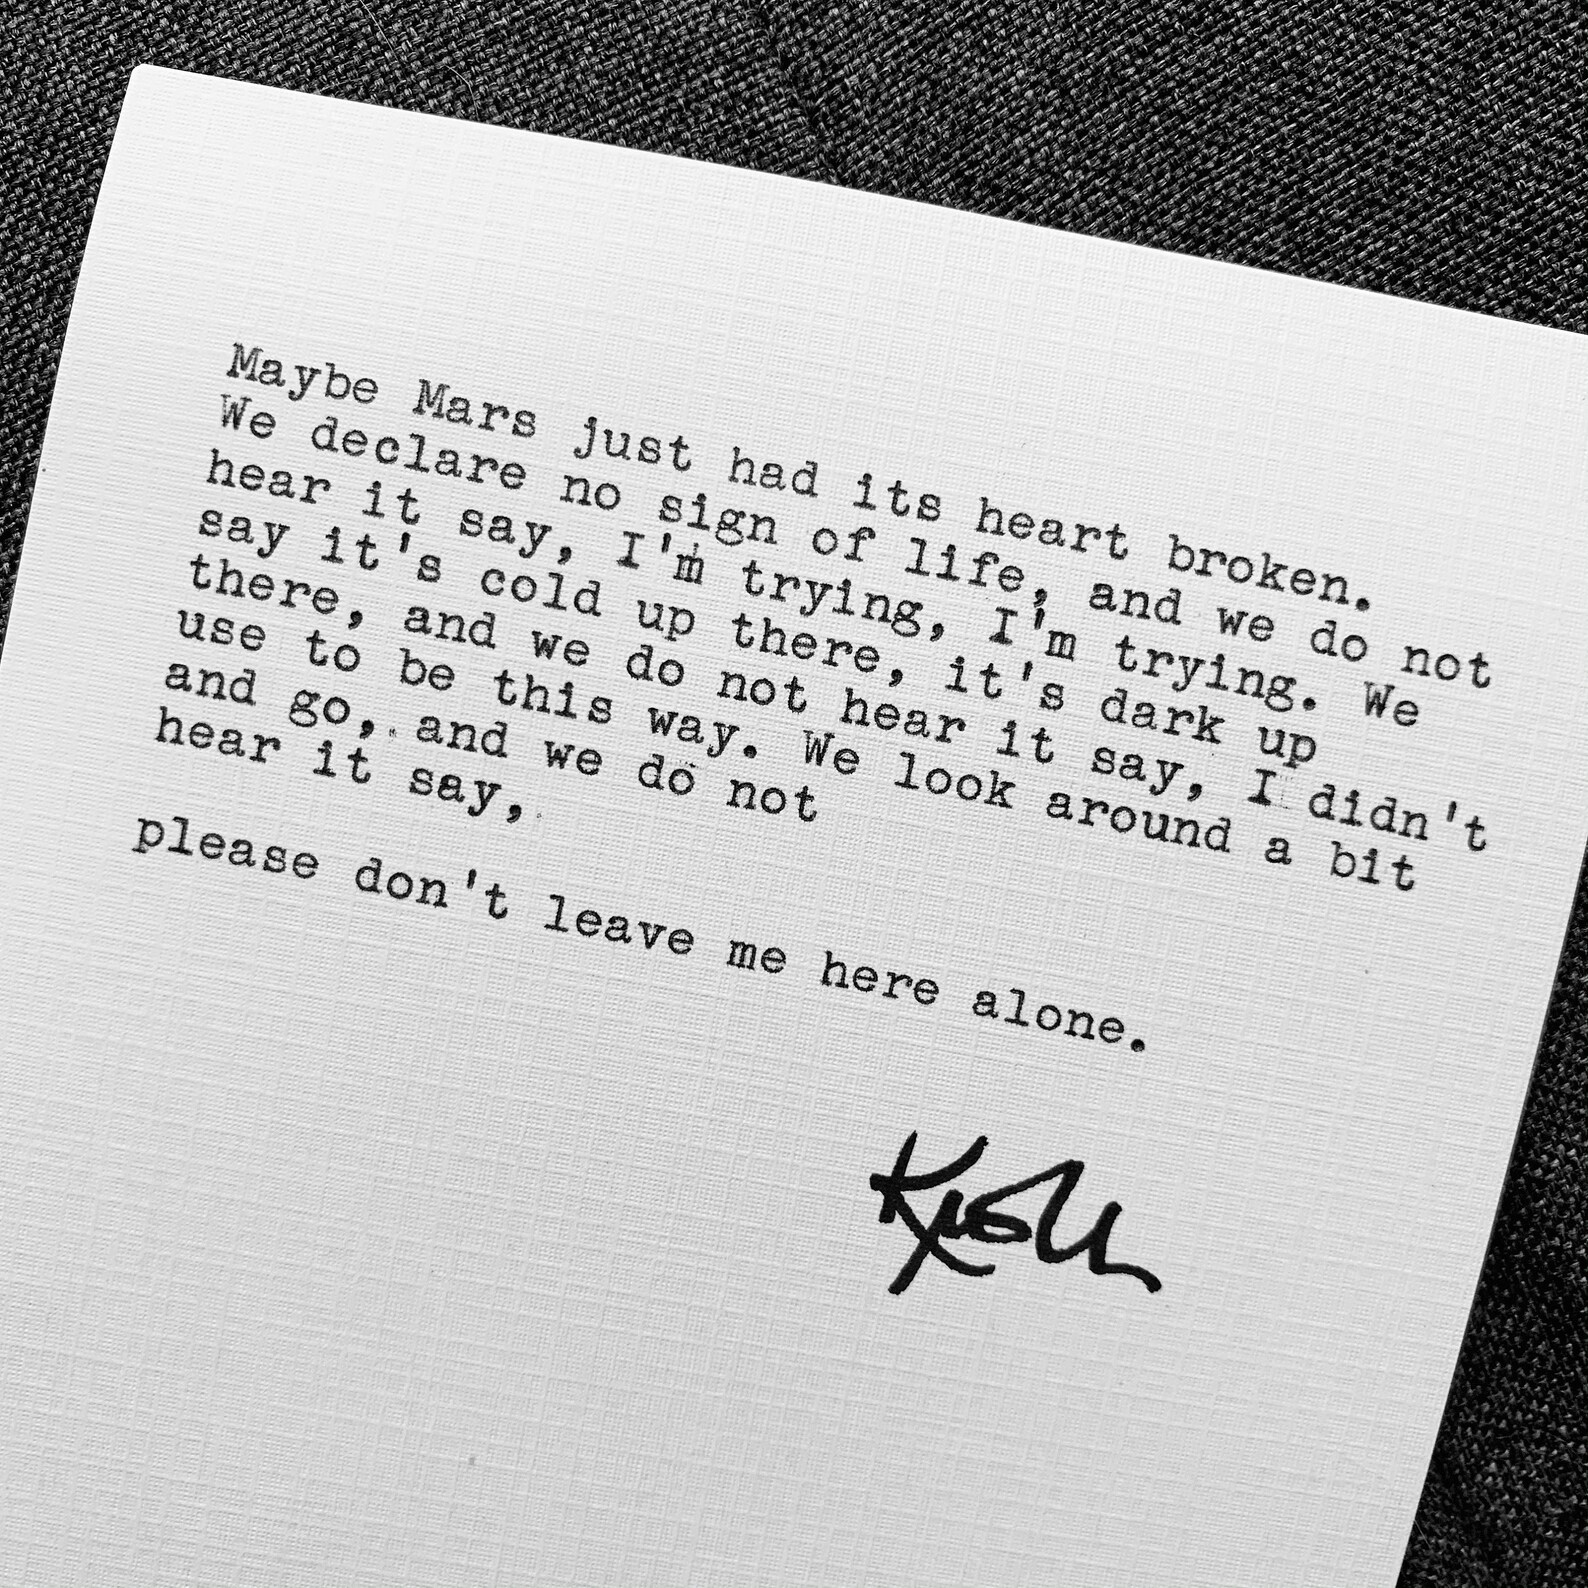 Maybe Mars just had its heart broken.
We declare no sign of life, and we do not
hear it say, I'm trying, I'm trying. We
say it's cold up there, it's dark up
there, and we do not hear it say, I didn't
use to be this way. We look around a bit
and go, and we do not
hear it say,
please don't leave me here alone.